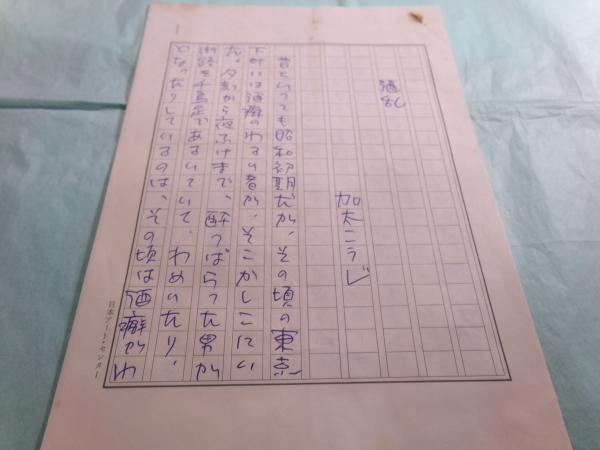 酒乱
加太こうじ
昔といっても昭和初期だが、その頃の東京
下町には酒癖のわるい者が、そこかしこにい
た。夕刻から夜ふけまで、酔っぱらった男が
街路を千鳥足であるいていて、わめいたり、
どなったりしているのは、その頃は酒癖がわ
日本アート・センター